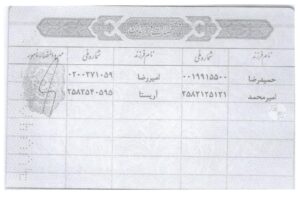 نام فرزند شماره ملی نام فرزند شماره ملی
حمیدرضا ۰۰۱۹۹۱۵۵۰۰ امیررضا ۰۲۰۰۲۷۱۰۵۹
امیرمحمد ۲۵۸۲۱۲۵۱۲۱ آریستا ۲۵۸۲۵۴۰۵۹۵